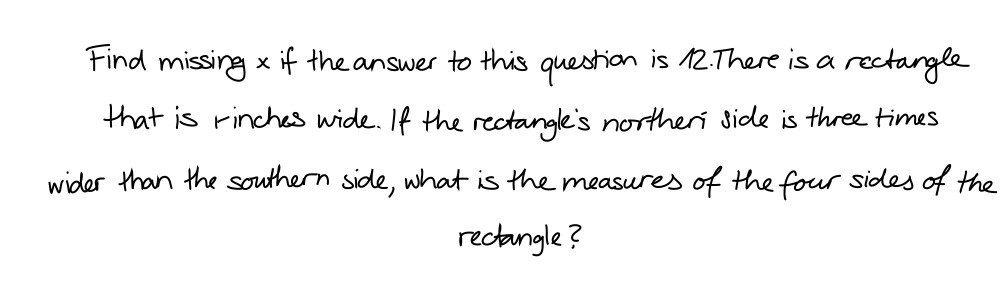 Find missing x if the answer to this question is 12. There is a rectangle
that is r inches wide. If the rectangle's northerí side is three times
wider than the southern side, what is the measures of the four sides of the
rectangle?